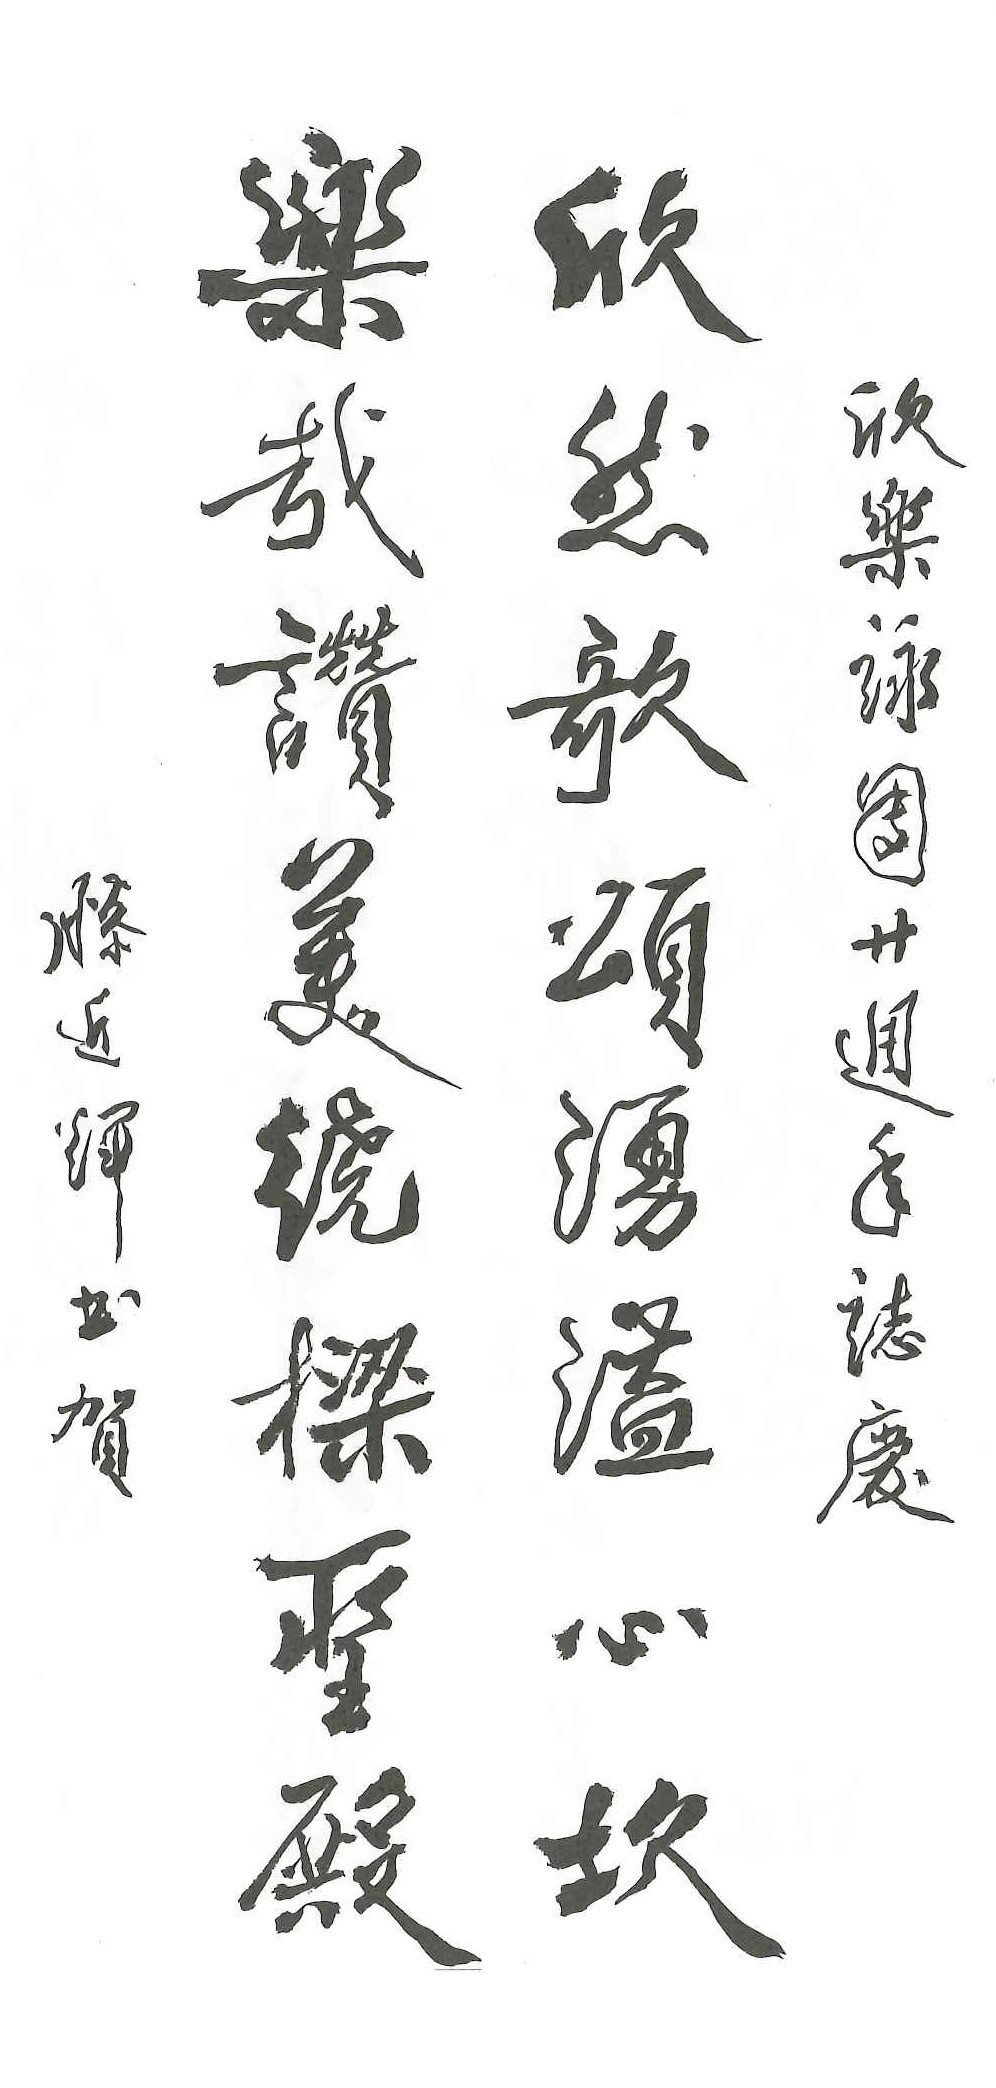 欣樂詠團廿週年誌慶
欣然歌頌湧溢心坎
樂哉讚美繞樑聖殿
滕近輝書賀